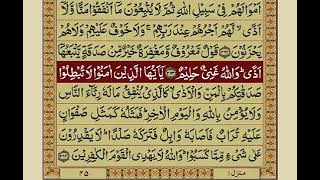 اَمْوَالَهُمْ فِیْ سَبِیْلِ اللّٰهِ ثُمَّ لَا یُتْبِعُوْنَ مَاۤ اَنْفَقُوْا مَنًّا وَّلَاۤ
اَذًیۙ لَّهُمْ اَجْرُهُمْ عِنْدَ رَبِّهِمْۚ وَلَا خَوْفٌ عَلَیْهِمْ وَلَا هُمْ
یَحْزَنُوْنَ ﴿۲۶۲﴾ قَوْلٌ مَّعْرُوْفٌ وَّمَغْفِرَةٌ خَیْرٌ مِّنْ صَدَقَةٍ یَّتْبَعُهَاۤ
اَذًیؕ وَاللّٰهُ غَنِیٌّ حَلِیْمٌ ﴿۲۶۳﴾ یٰۤاَیُّهَا الَّذِیْنَ اٰمَنُوْا لَا تُبْطِلُوْا
صَدَقٰتِكُمْ بِالْمَنِّ وَالْاَذٰیۙ كَالَّذِیْ یُنْفِقُ مَالَهٗ رِئَآءَ النَّاسِ
وَلَا یُؤْمِنُ بِاللّٰهِ وَالْیَوْمِ الْاٰخِرِؕ فَمَثَلُهٗ كَمَثَلِ صَفْوَانٍ
عَلَیْهِ تُرَابٌ فَاَصَابَهٗ وَابِلٌ فَتَرَكَهٗ صَلْدًاؕ لَا یَقْدِرُوْنَ
عَلٰی شَیْءٍ مِّمَّا كَسَبُوْاؕ وَاللّٰهُ لَا یَهْدِی الْقَوْمَ الْكٰفِرِیْنَ ﴿۲۶۴﴾
منزل ۱ ۴۵